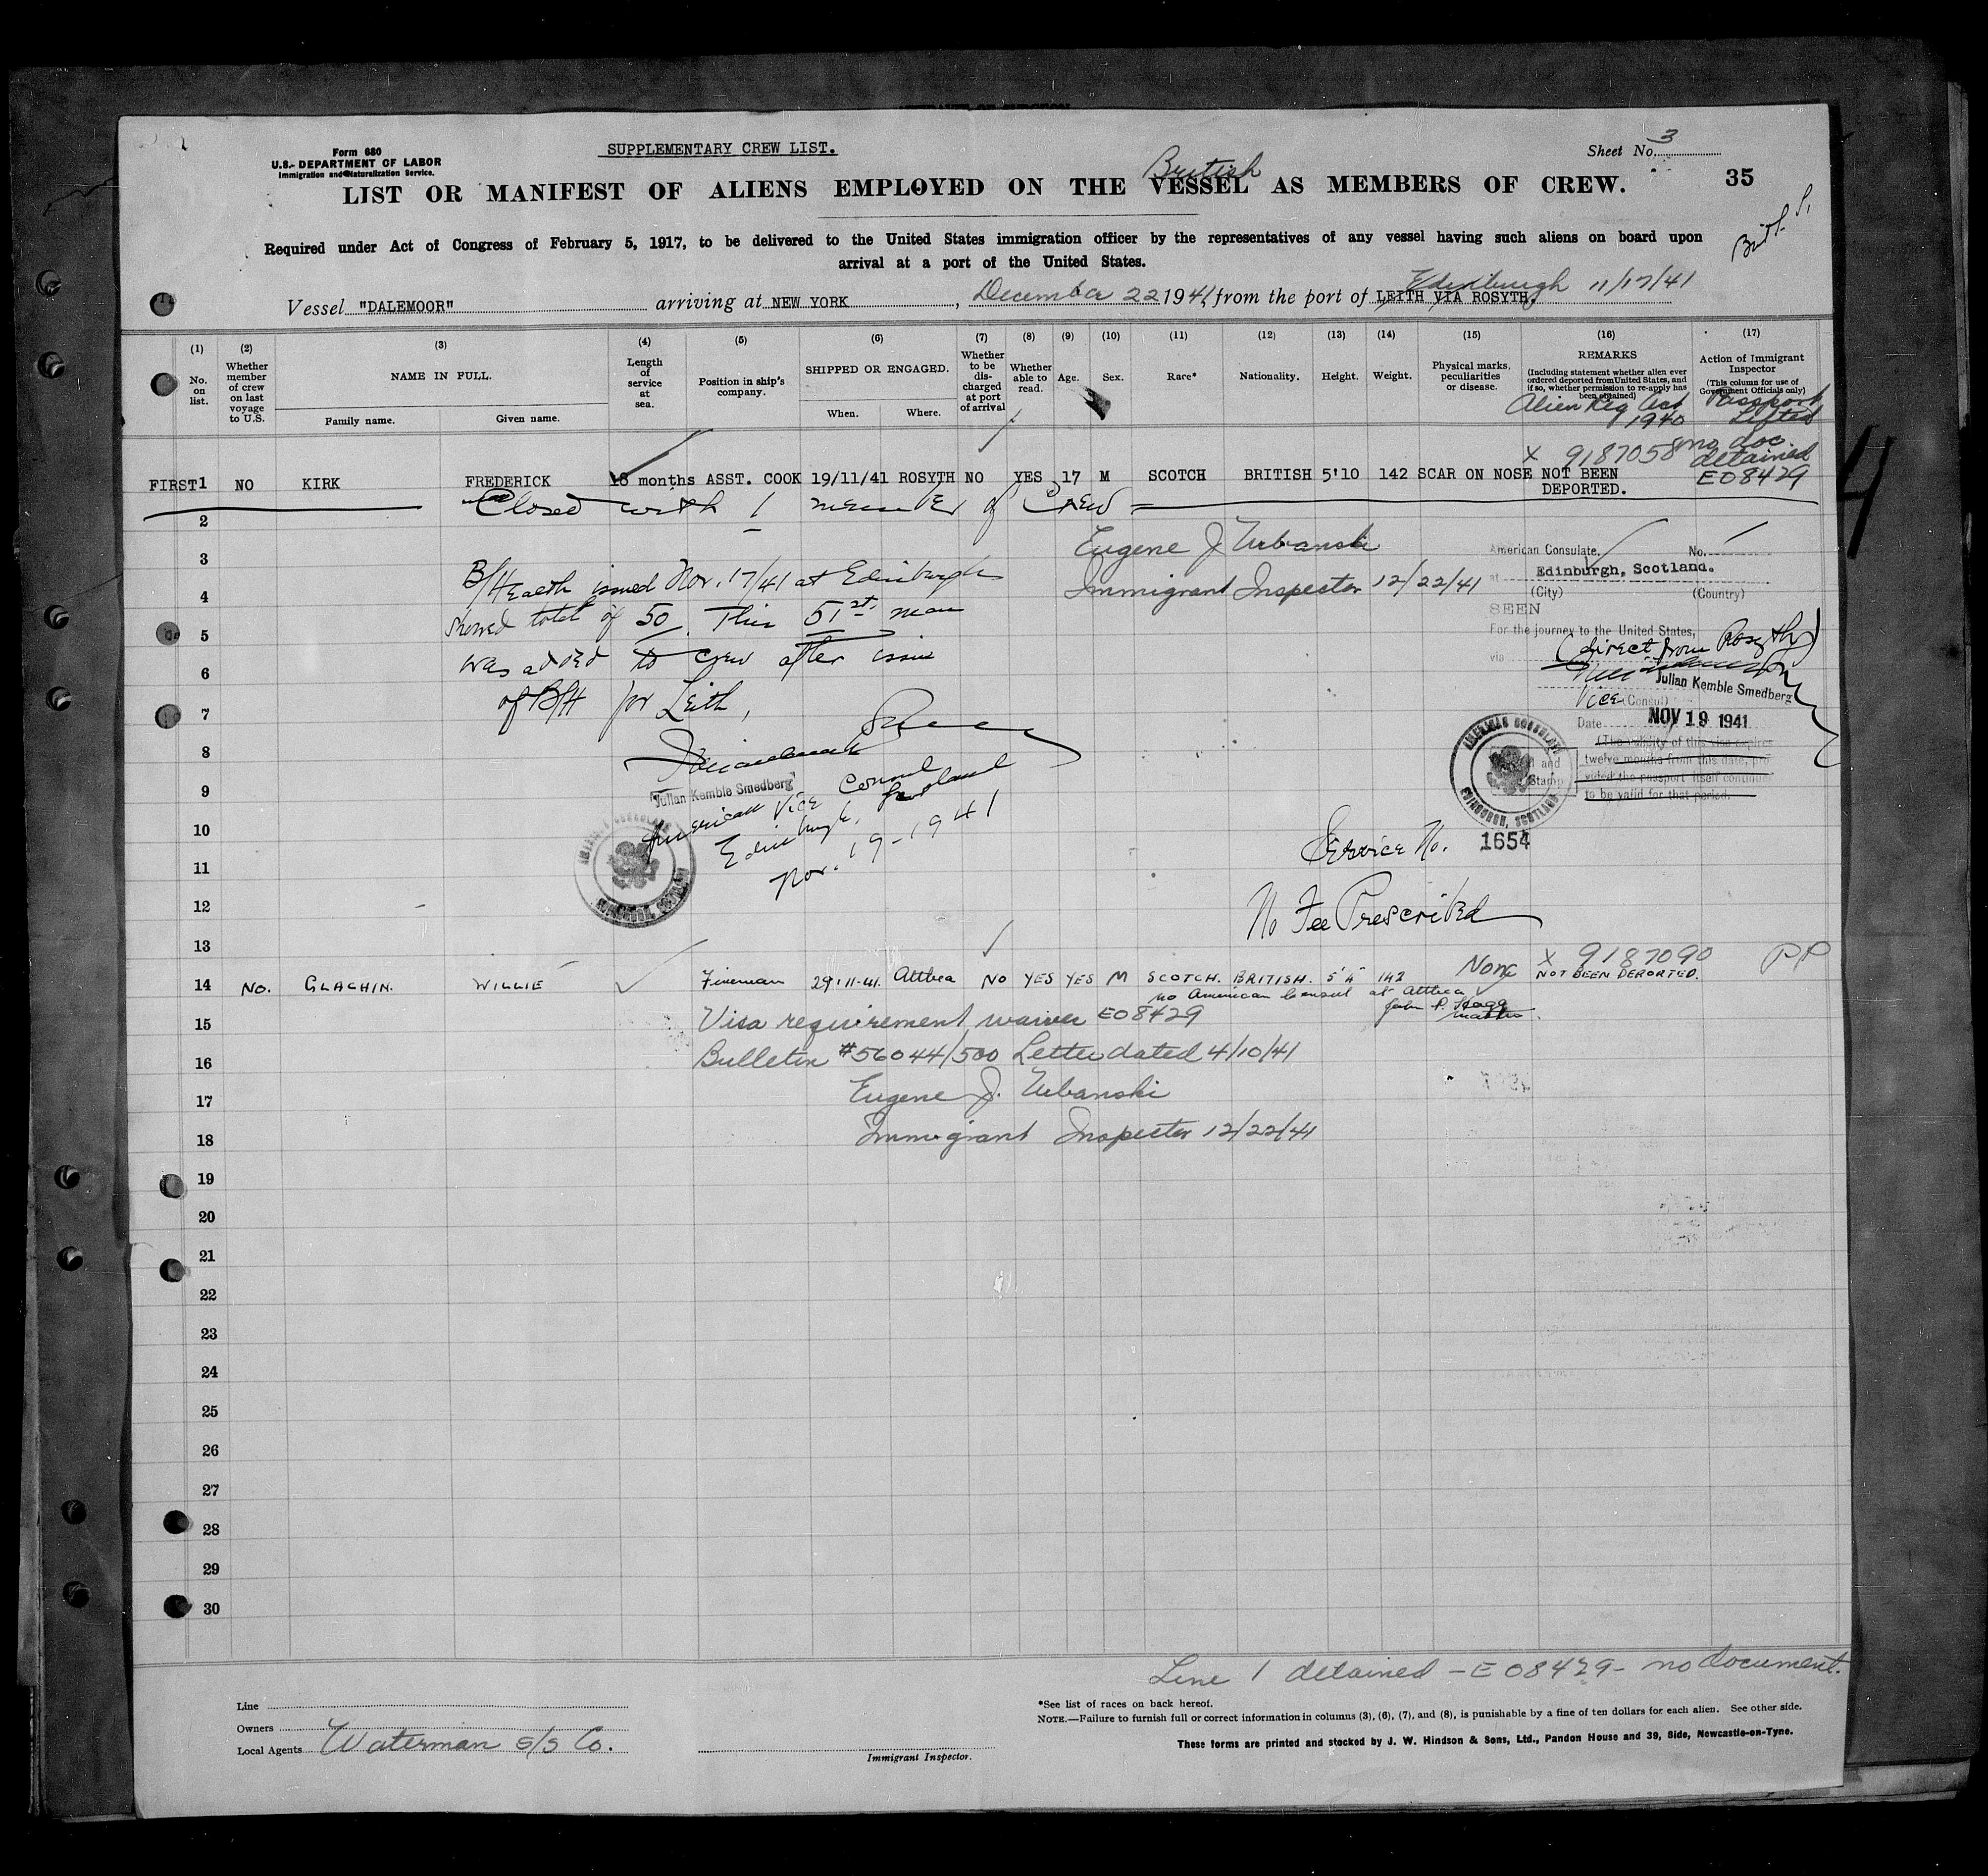 Form 680
U.S. DEPARTMENT OF LABOR
Immigration and Naturalization Service.
SUPPLEMENTARY CREW LIST.
Sheet No. 3
British
LIST OR MANIFEST OF ALIENS EMPLOYED ON THE VESSEL AS MEMBERS OF CREW.
35
Required under Act of Congress of February 5, 1917, to be delivered to the United States immigration officer by the representatives of any vessel having such aliens on board upon
arrival at a port of the United States.
Edinburgh 11/17/41
Vessel "DALEMOOR" arriving at NEW YORK, December 22 1941, from the port of LEITH VIA ROSYTH.
(1) No. on list.
(2) Whether member of crew on last voyage to U.S.
(3) NAME IN FULL.
Family name.
Given name.
(4) Length of service at sea.
(5) Position in ship's company.
(6) SHIPPED OR ENGAGED.
When.
Where.
(7) Whether to be discharged at port of arrival
(8) Whether able to read.
(9) Age.
(10) Sex.
(11) Race*
(12) Nationality.
(13) Height.
(14) Weight.
(15) Physical marks, peculiarities or disease.
(16) REMARKS
(Including statement whether alien ever ordered deported from United States, and if so, whether permission to re-apply has been obtained)
Alien Reg Act
1940
(17) Action of Immigrant Inspector
(This column for use of Government Officials only)
Passport
Lifted
no doc.
detained
E08429
X 9187058
FIRST 1 NO KIRK FREDERICK 18 months ASST. COOK 19/11/41 ROSYTH NO YES 17 M SCOTCH BRITISH 5'10 142 SCAR ON NOSE NOT BEEN
DEPORTED.
Closed with 1 member of Crew
2
Eugene J Urbanski
Immigrant Inspector 12/22/41
3
4
B/Health issued Nov. 17/41 at Edinburgh
showed total of 50. This 51st man
was added to crew after issue
of B/H for Leith,
5
6
7
American Consulate, No.
at Edinburgh, Scotland.
(City) (Country)
SEEN
For the journey to the United States,
via (direct from Rosyth)
Julian Kemble Smedberg
Vice (Consul)
Date NOV 19 1941
(The validity of this visa expires
twelve months from this date, pro
vided the passport itself continue
to be valid for that period.
AMERICAN CONSULATE
EDINBURGH, SCOTLAND
8
9
Julian Kemble Smedberg
American Vice Consul
Edinburgh, Scotland
Nov. 19-1941
10
Service No. 1654
11
12
No Fee Prescribed
13
X 9187090 PP
14 No. GLACHIN. WILLIE Fireman 29·11·41. Altbea NO YES YES M SCOTCH. BRITISH. 5'4" 142 None NOT BEEN DEPORTED.
no American Consul at Altbea
15 Visa requirement waiver E08429
16 Bulletin #56044/500 Letter dated 4/10/41
17 Eugene J. Urbanski
18 Immigrant Inspector 12/22/41
19
20
21
22
23
24
25
26
27
28
29
30
Line 1 detained - E 08429 - no document.
Line
Owners
Local Agents Waterman S/S Co.
Immigrant Inspector.
*See list of races on back hereof.
NOTE.—Failure to furnish full or correct information in columns (3), (6), (7), and (8), is punishable by a fine of ten dollars for each alien. See other side.
These forms are printed and stocked by J. W. Hindson & Sons, Ltd., Pandon House and 39, Side, Newcastle-on-Tyne.